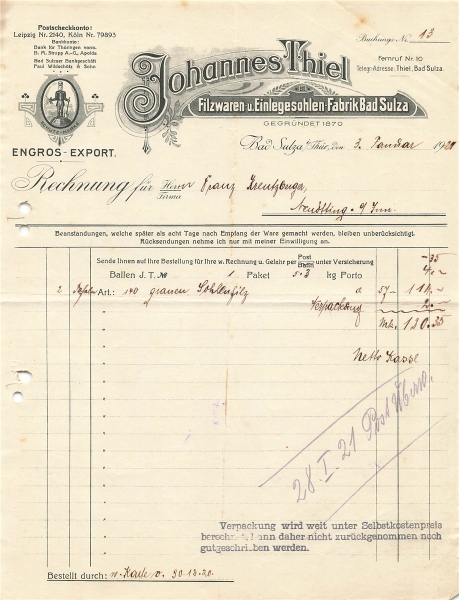 Postscheckkonto:
Leipzig Nr. 2140, Köln Nr. 79893
Bankkonto:
Bank für Thüringen vorm.
B. M. Strupp A.-G., Apolda
Bad Sulzaer Bankgeschäft
Paul Wildschütz & Sohn
Buchungs No. 13
Johannes Thiel
Fernruf Nr. 10
Telegr.-Adresse: Thiel, Bad Sulza.
Filzwaren u. Einlegesohlen-Fabrik Bad Sulza
GEGRÜNDET 1870
SCHUTZ-MARKE
ENGROS-EXPORT.
Bad Sulza i. Thür., den 3. Januar 1921
Rechnung für Herrn Franz
Firma
Neuötting a/Inn.
Beanstandungen, welche später als acht Tage nach Empfang der Ware gemacht werden, bleiben unberücksichtigt.
Rücksendungen nehme ich nur mit meiner Einwilligung an.
Sende Ihnen auf Ihre Bestellung für Ihre w. Rechnung u. Gefahr per Post Bahn unter Versicherung -35
Ballen J. T. No 1 Paket 5.3 kg Porto
2 Art.: 100 grauen Sohlenfilz a 57- 114.-
Verpackung 2.-
Mk. 120.35
Netto Kasse
28. I. 21 Post Überw.
Verpackung wird weit unter Selbstkostenpreis
berechnet, kann daher nicht zurückgenommen noch
gutgeschrieben werden.
Bestellt durch: w. Karte v. 30.12.20.